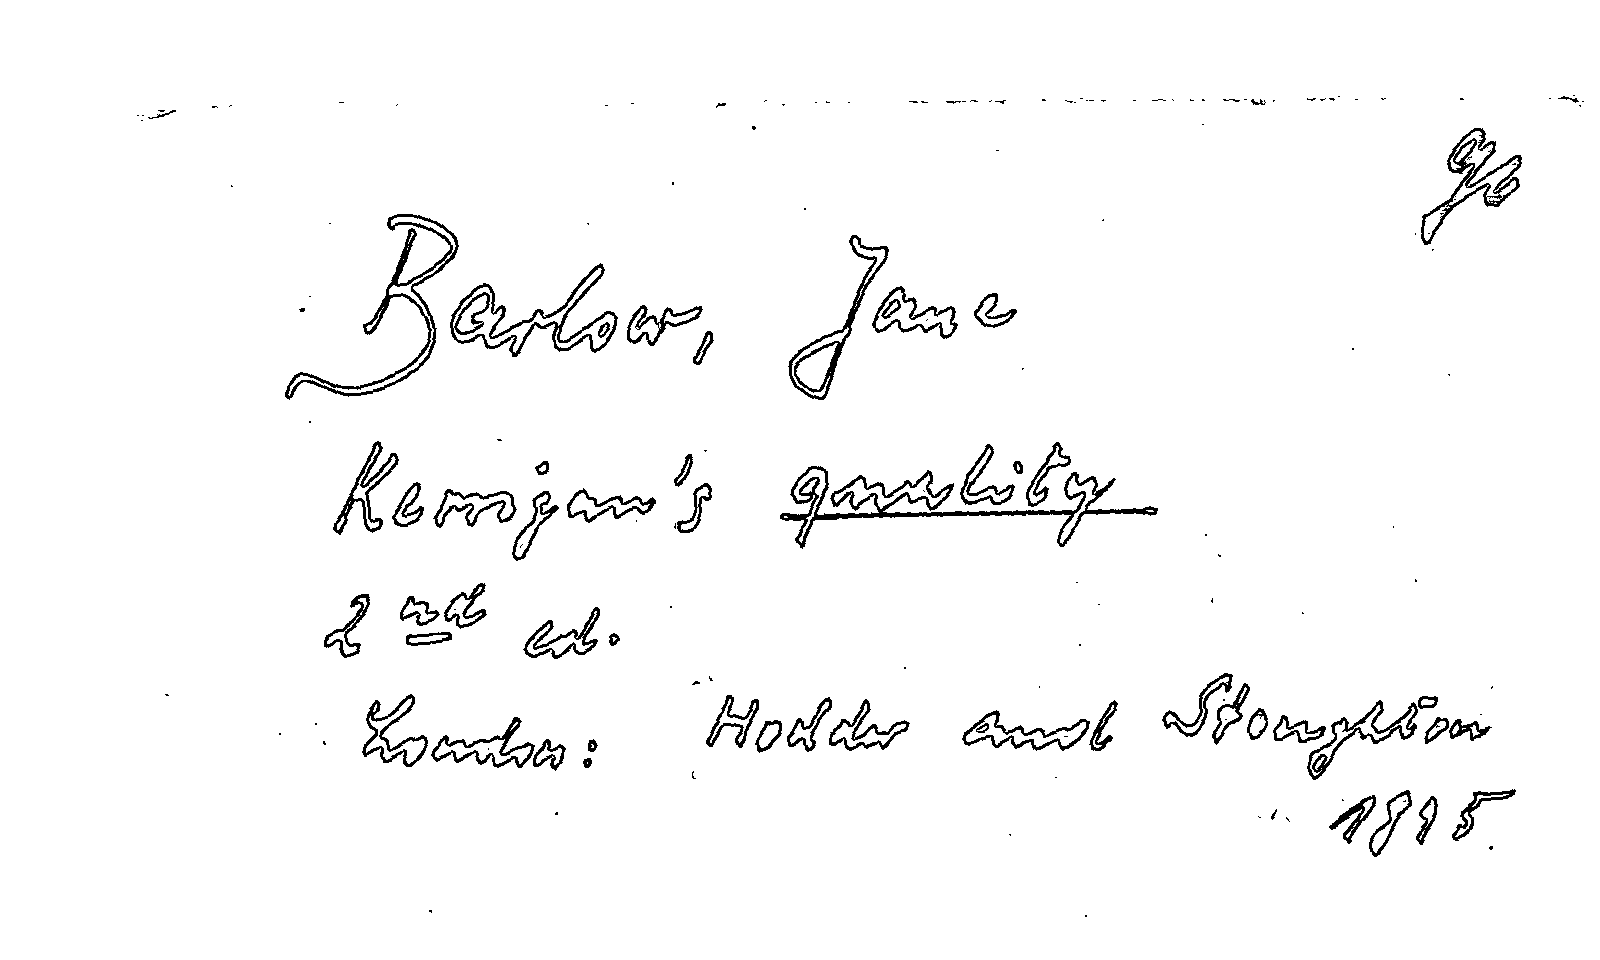 Barlow, Jane
Kerrigan's quality
2nd ed.
London: Hodder and Stoughton
1895.